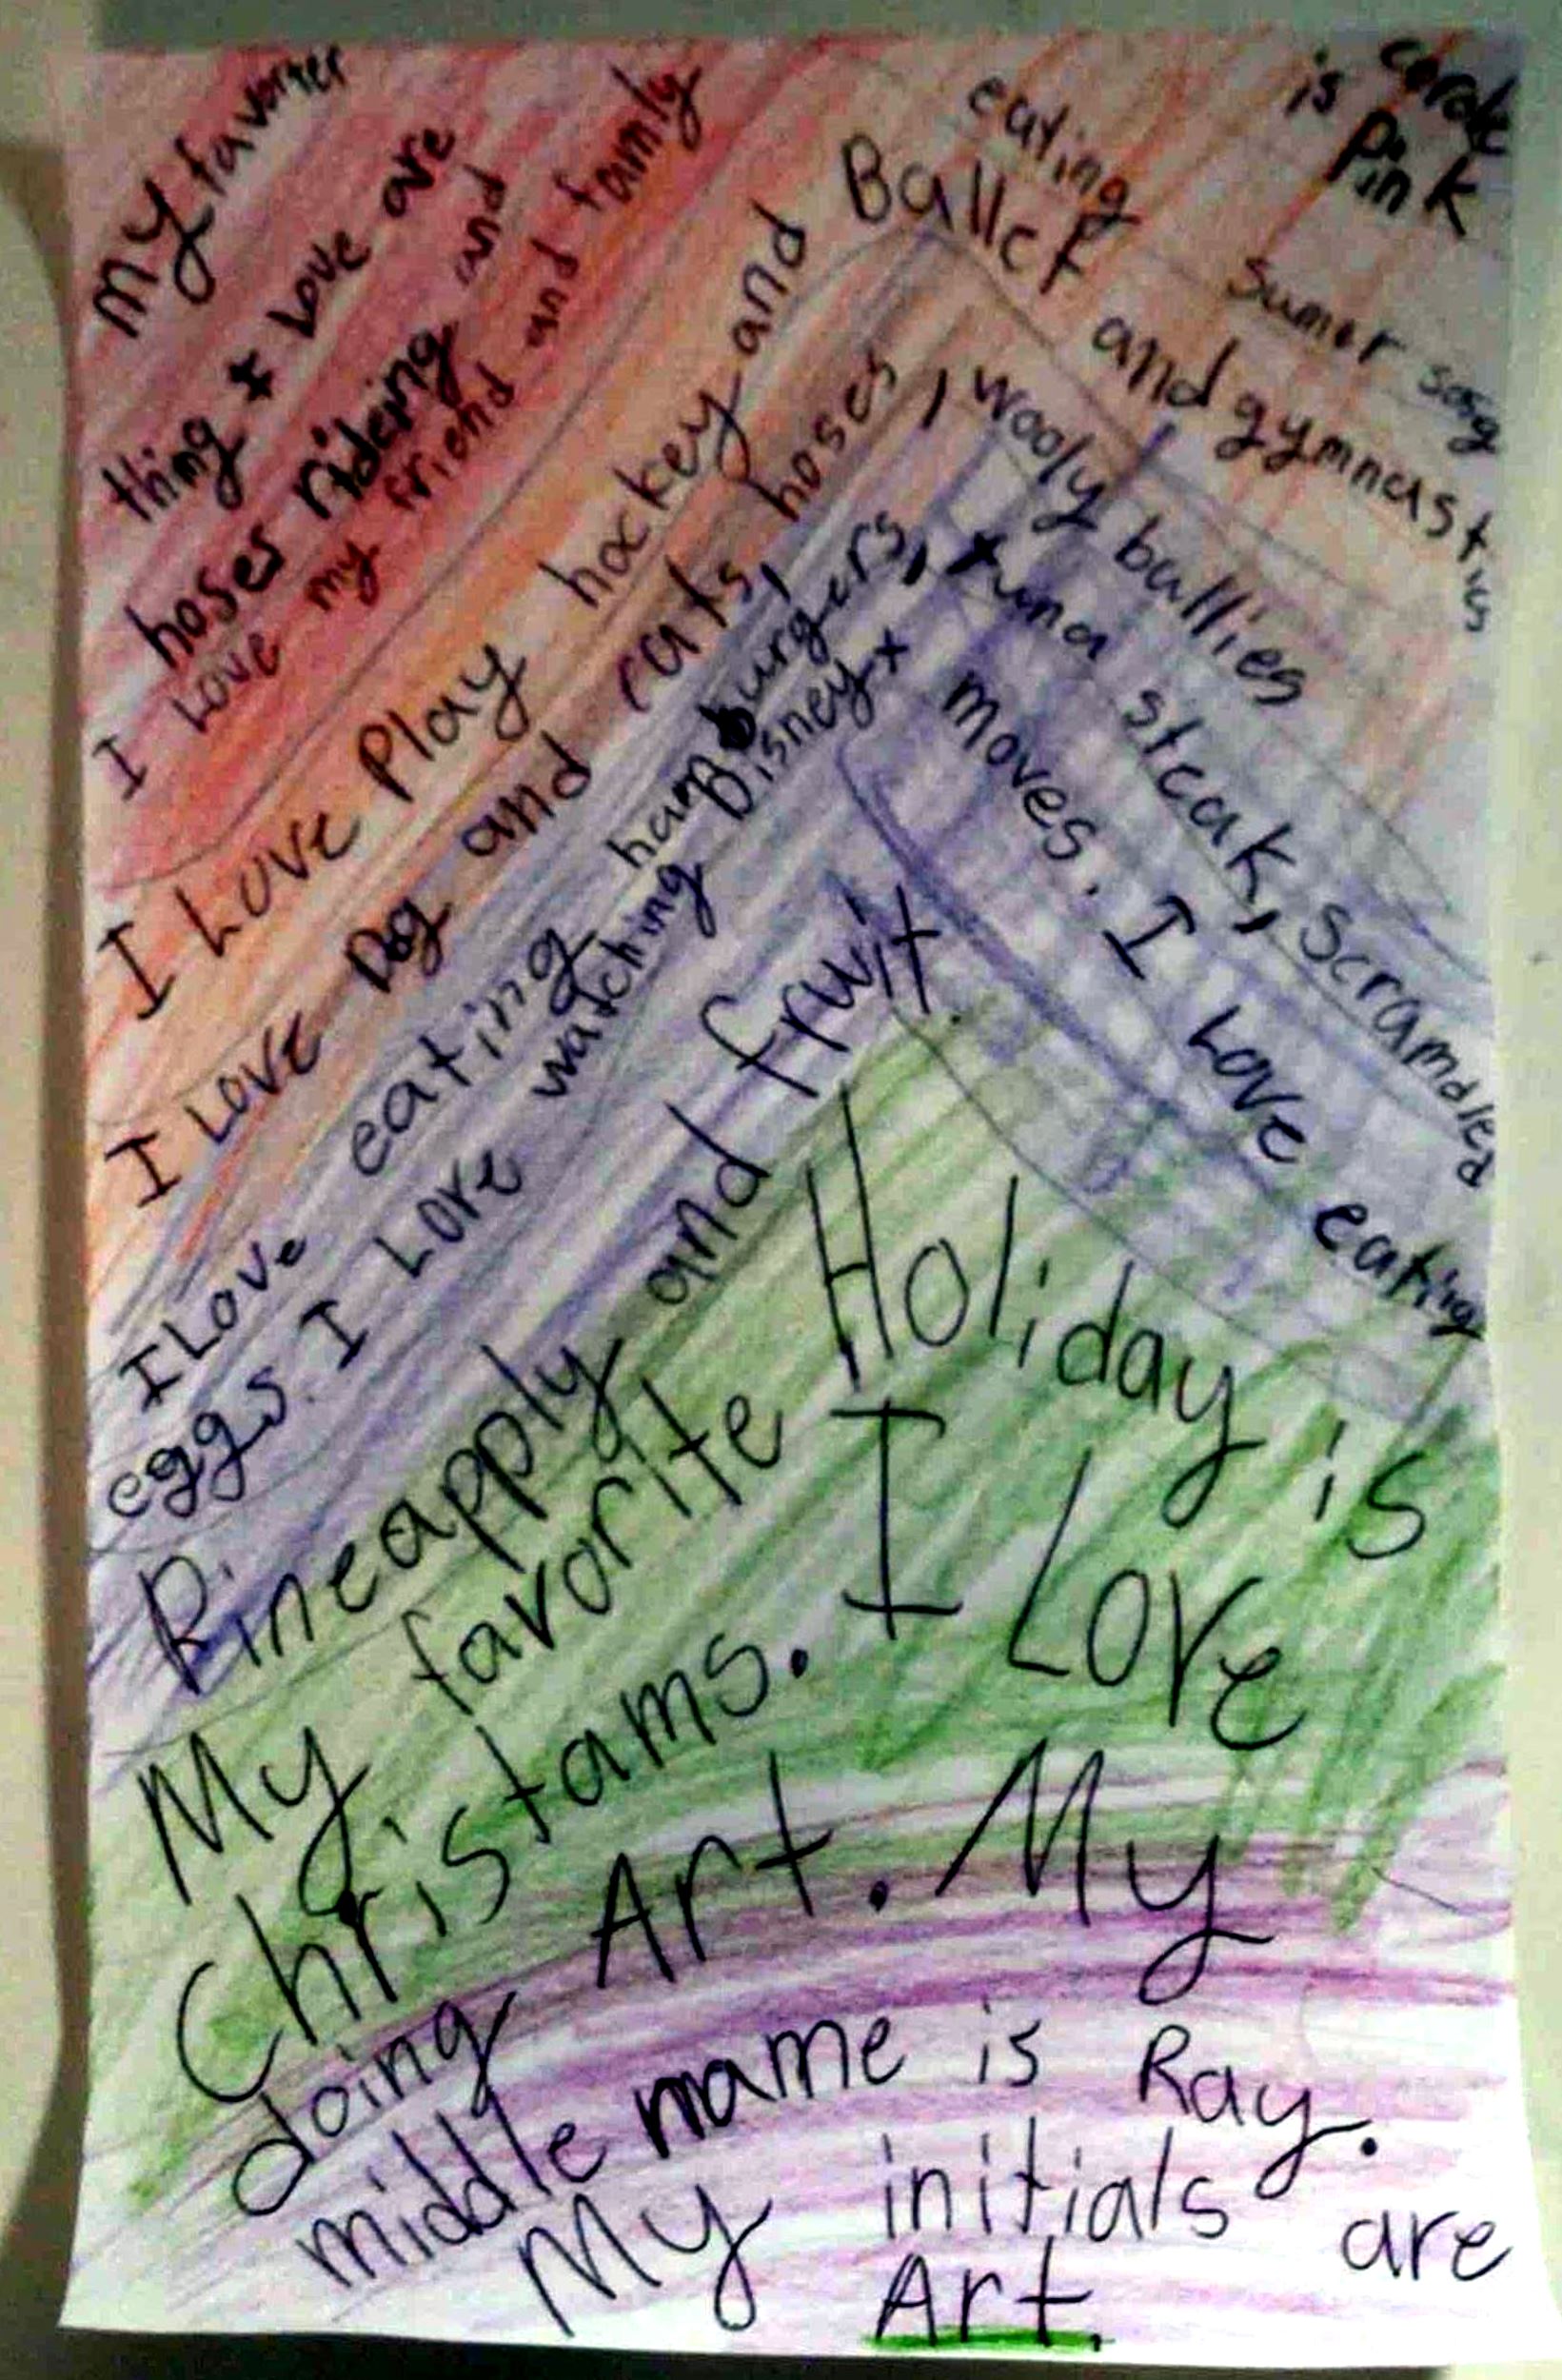 My favoriet corole
is Pink
thing I Love are eating
hoses ridering and sumer song
I Love my friend and family
I Love Play hockey and Ballet and gymnastics
I Love Dog and rats, hoses, wooly bullies
I Love eating hamburgers, tuna steak, scrambled
eggs. I Love watching Disney moves. I Love eating
Pineapply and fruit.
My favorite Holiday is
Christams. I Love
doing Art. My
middle name is Ray.
My initials are
Art.